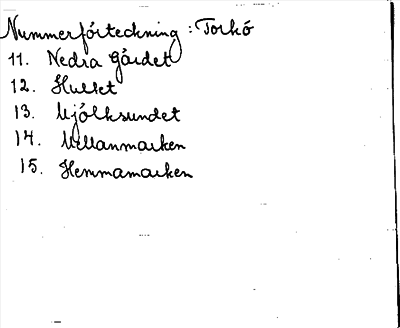 Nummerförteckning : Torkö
11. Nedra Gärdet
12. Hullet
13. Mjölksundet
14. Mellanmarken
15. Hemmamarken